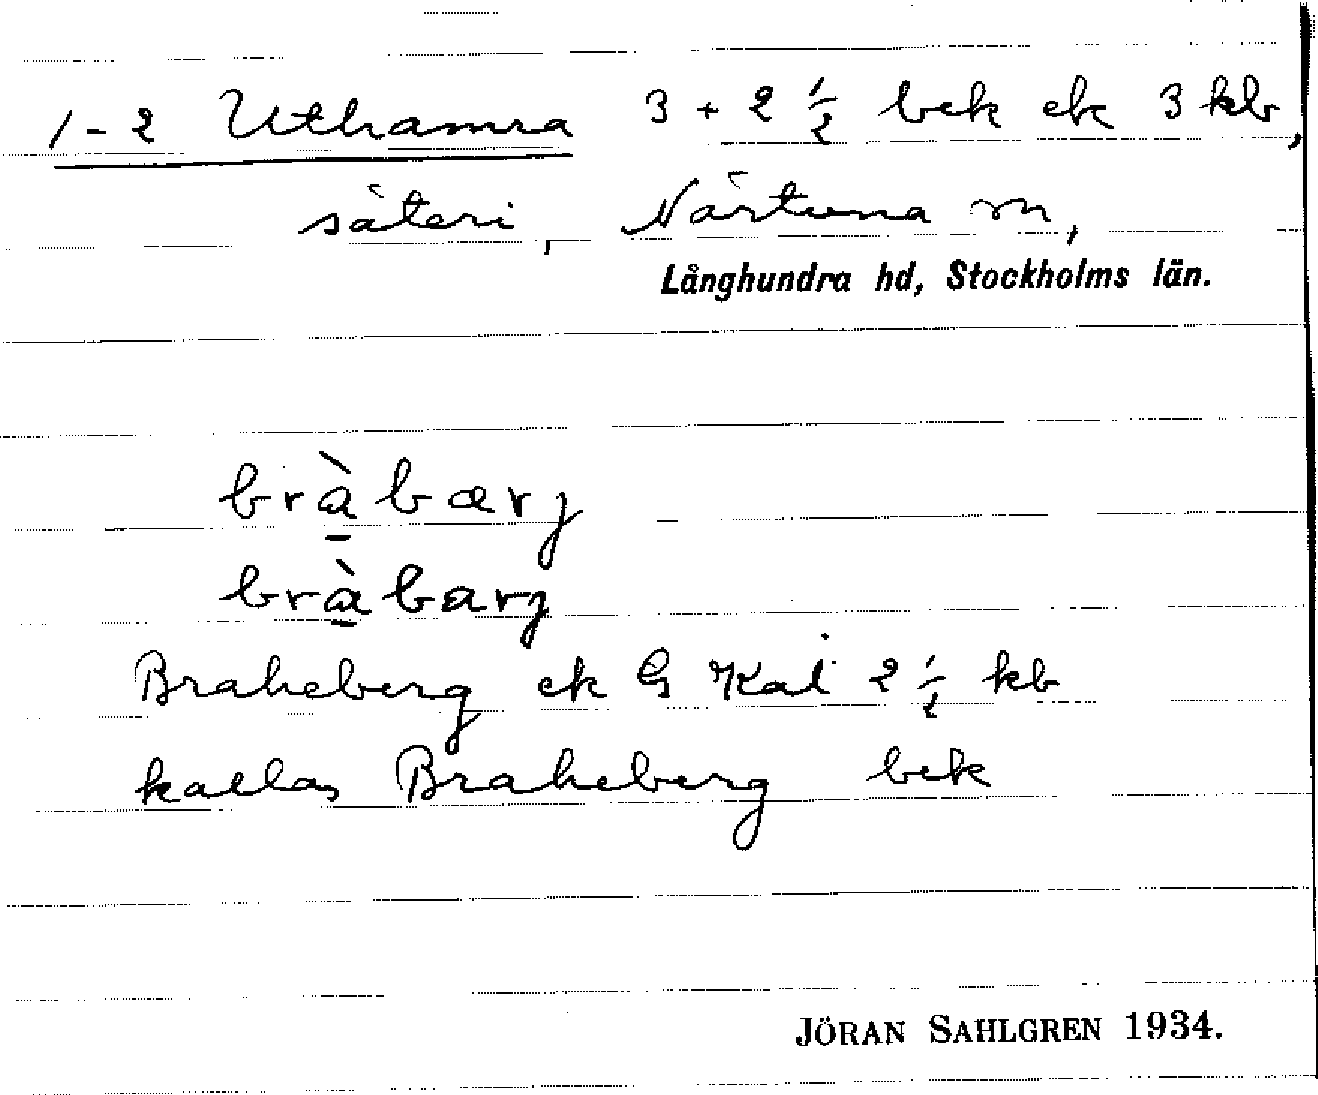 1-2 Uthamra 3 + 2 ½ bek ek 3 kb,
säteri, Närtuna sn,
Långhundra hd, Stockholms län.
brà̱bærj
brà̱barj
Braheberg ek G Kat 2 ½ kb
kallas Braheberg bek
JÖRAN SAHLGREN 1934.